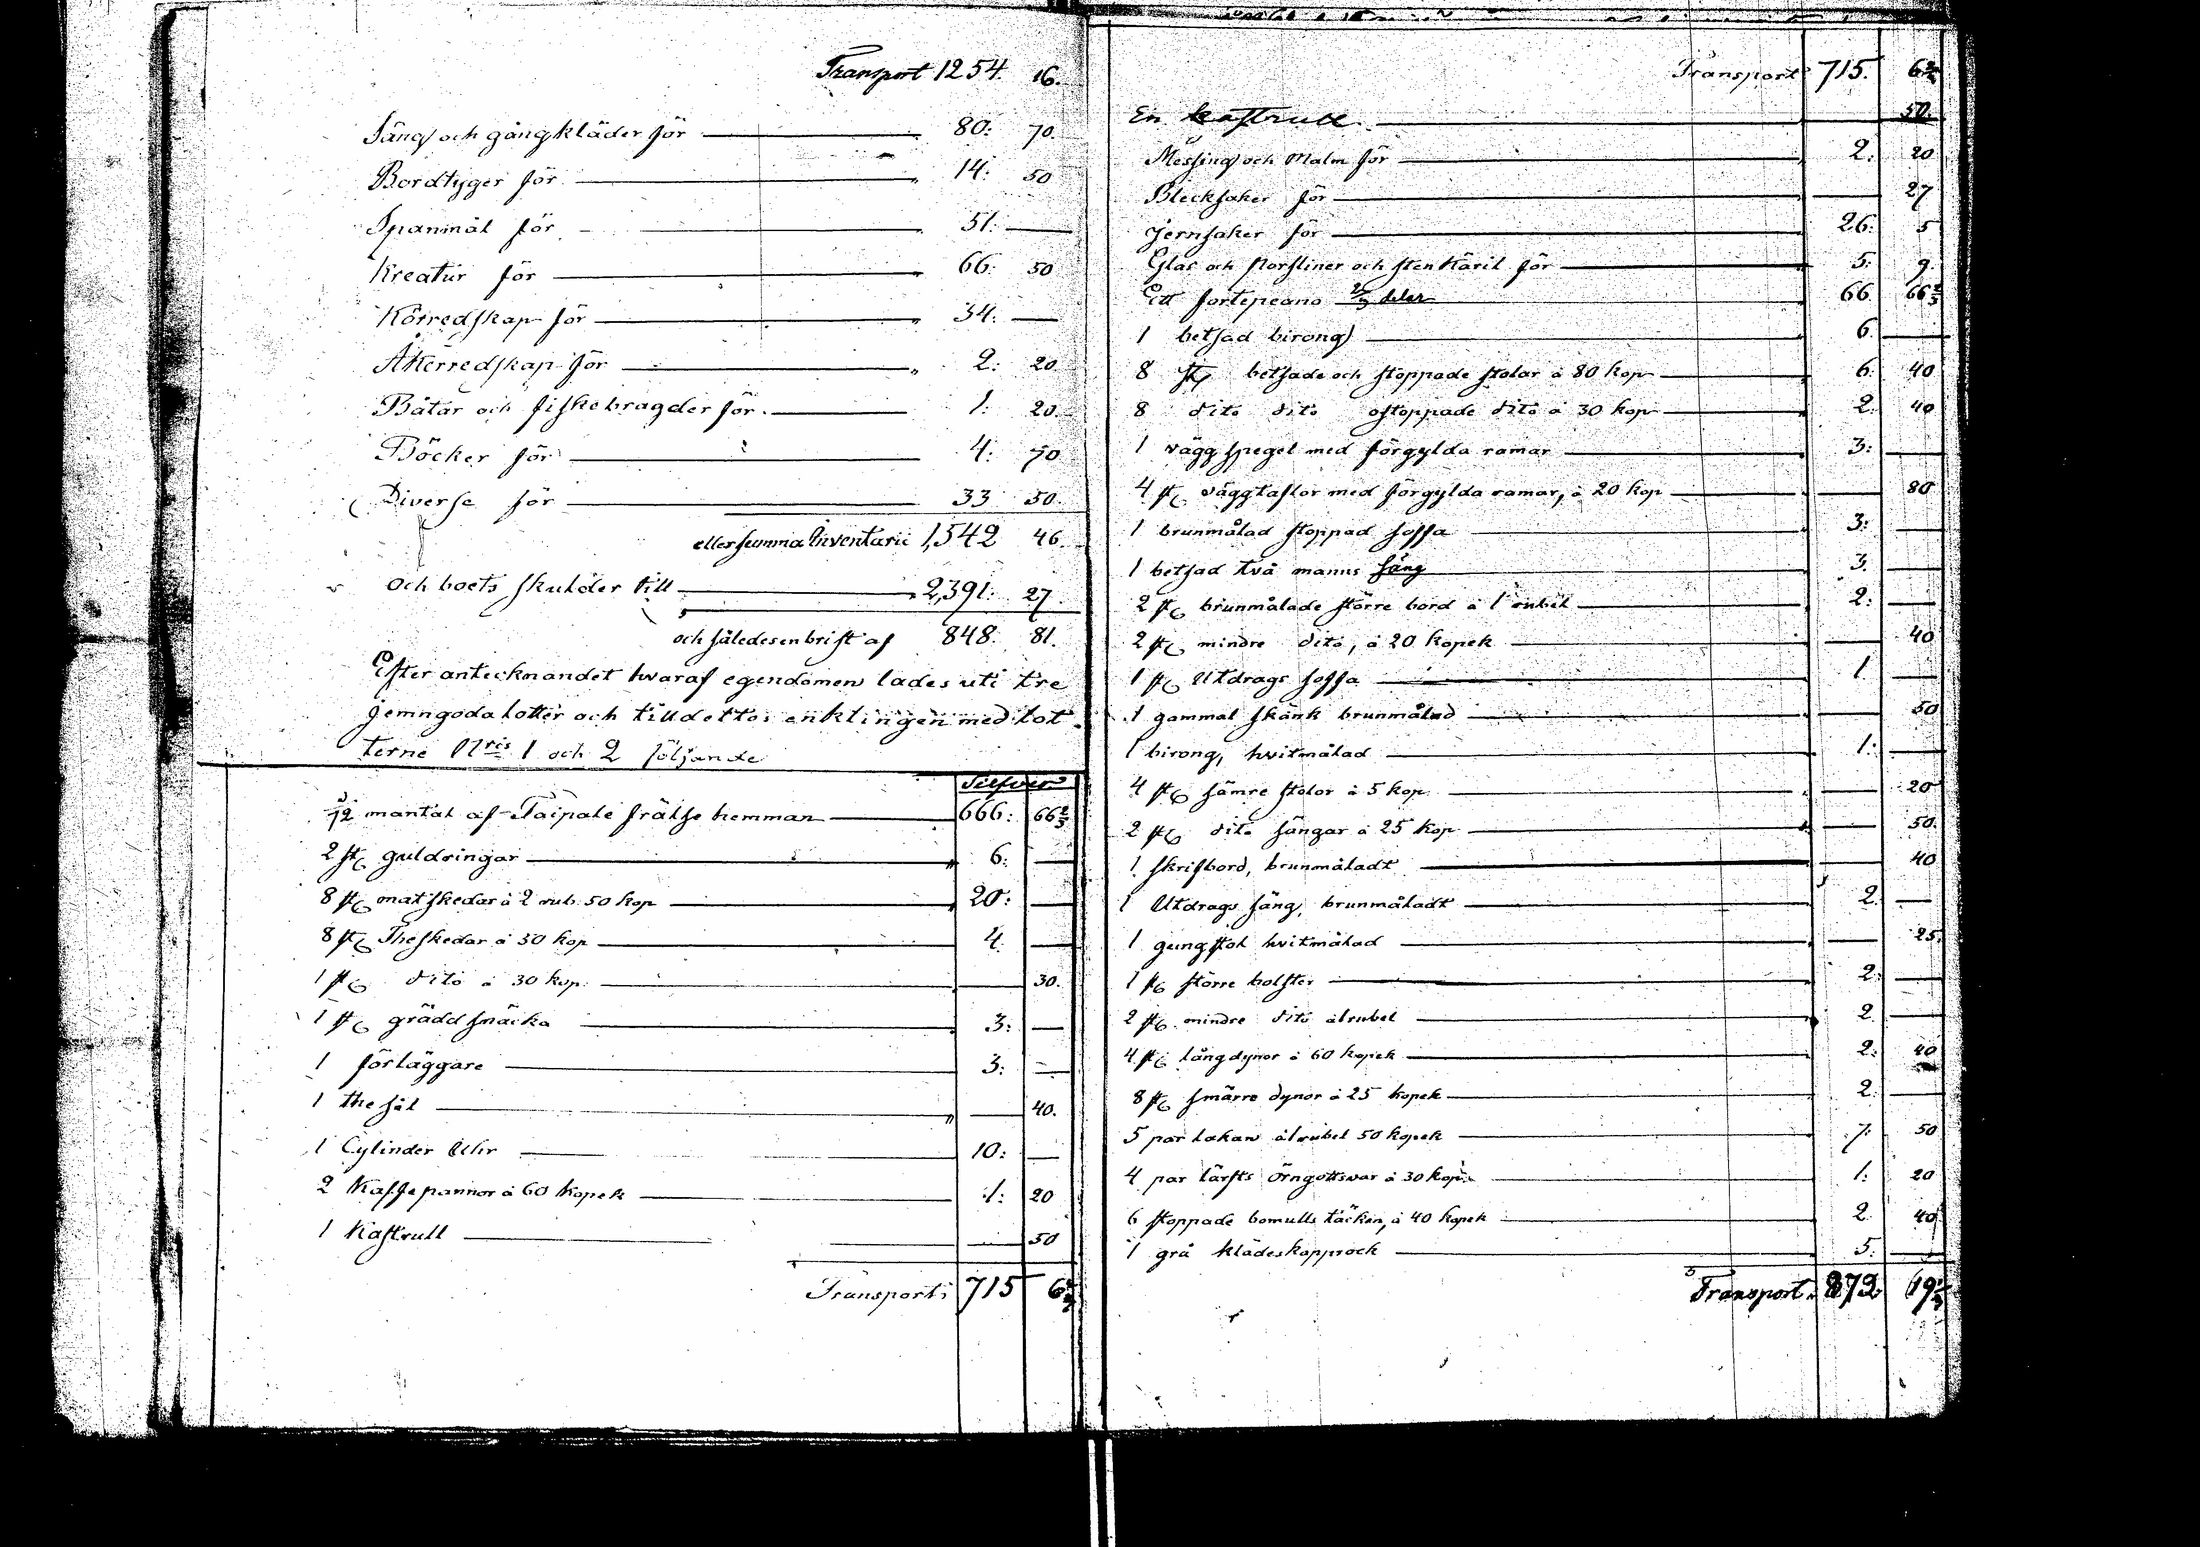 Transport 1254. 16.
Säng och gångkläder för 80: 70.
Bordtyger för 14: 50
Spanmål för 51:
Kreatur för 66: 50
Körredskap för 34:
Åkerredskap för 2: 20
Båtar och fiskebragder för 1: 20
Böcker för 4: 70
Diverse för 33 50.
eller summa Inventarii 1,542 46.
och boets skulder till 2,391: 27.
och således en brist af 848. 81.
Efter antecknandet hvaraf egendomen lades uti tre
jemngoda lotter och tilldeltos enklingen med lot
terne Nris 1 och 2 följande
Silfver
mantal af Taipale frälse hemman 666: 66 2/3
2 st guldringar 6:
8 st matskedar à 2 rub. 50 kop 20:
8 st Theskedar à 50 kop 4.
1 st dito à 30 kop. 30.
1 st gräddsnäcka 3:
1 förläggare 3:
1 the sil 40.
1 Cylinder Uhr 10:
2 Kaffepannor à 60 Kopek 1: 20
1 Kastrull 50
Transport: 715 6 2/3
Transport 715. 6 2/3
En kastrull 50.
Messing och Malm för 2. 20
Blecksaker för 27
Jernsaker för 26. 5
Glas och Porsliner och stenkäril för 5. 9.
Ett fortepeano 2/3 delar 66. 66 2/3
1 betsad birong 6.
8 st betsade och stoppade stolar à 80 kop 6. 40
8 dito dito ostoppade dito à 30 kop 2. 40
1 väggspegel med förgylda ramar 3:
4 st väggtaflor med förgylda ramar, à 20 kop 80
1 brunmålad stoppad soffa 3:
1 betsad två manns säng 3.
2 st brunmålade större bord à 1 rubel 2:
2 st mindre dito, à 20 kopek 40
1 st Utdrags soffa 1.
1 gammal skänk brunmålad 50
1 birong, hvitmålad 1:
4 st sämre stolor à 5 kop. 20
2 st dito sängar à 25 kop 50.
1 skrifbord, brunmåladt 40
1 Utdrags säng, brunmåladt 2.
1 gungstol hvitmålad 25.
1 st större bolster 2:
2 st mindre dito à 1 rubel 2.
4 st långdynor à 60 kopek 2: 40
8 st smärre dynor à 25 kopek 2.
5 par lakan à 1 rubel 50 kopek 7: 50
4 par lärfts örngottsvar à 30 kop. 1: 20
6 stoppade bomulls täcken, à 40 kopek 2. 40
1 grå klädeskapprock 5.
Transport. 872 19 1/3